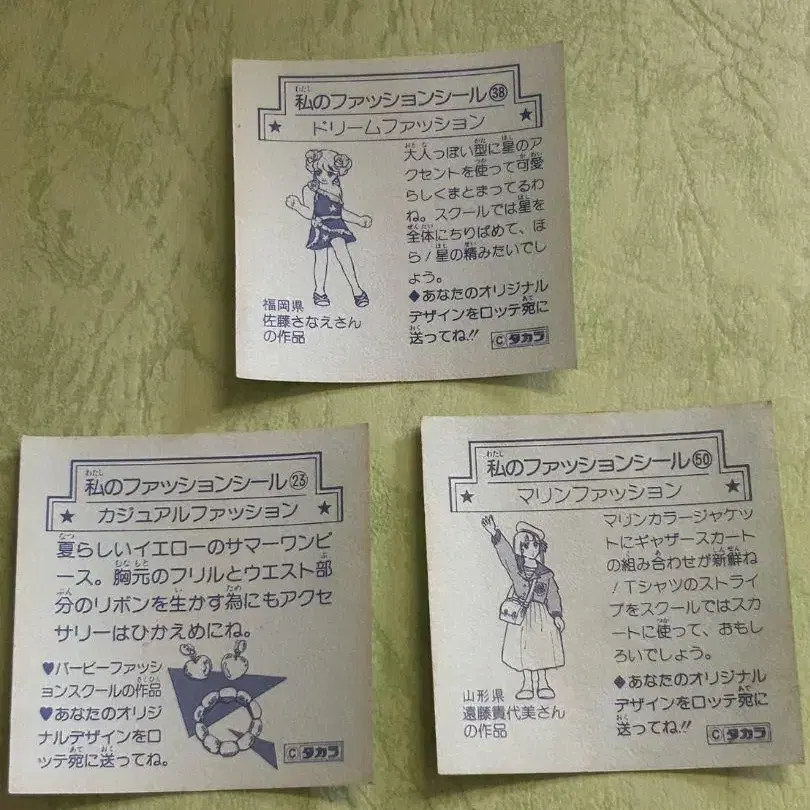 私のファッションシール㊳
わたし
ドリームファッション
大人っぽい型に星のア
クセントを使って可愛
らしくまとまってるわ
ね。スクールでは星を
全体にちりばめて、ほ
ら！星の精みたいでし
ょう。
◆あなたのオリジナル
デザインをロッテ宛に
送ってね!!
福岡県
佐藤さなえさん
の作品
Cタカラ
私のファッションシール㉓
わたし
カジュアルファッション
夏らしいイエローのサマーワンピ
ース。胸元のフリルとウエスト部
分のリボンを生かす為にもアクセ
サリーはひかえめにね。
♥バービーファッシ
ョンスクールの作品
♥あなたのオリジ
ナルデザインをロ
ッテ宛に送ってね。
Cタカラ
私のファッションシール㊿
わたし
マリンファッション
マリンカラージャケッ
トにギャザースカート
の組み合わせが新鮮ね
！Tシャツのストライ
プをスクールではスカ
ートに使って、おもし
ろいでしょう。
◆あなたのオリジナル
デザインをロッテ宛に
送ってね!!
山形県
遠藤貴代美さん
の作品
Cタカラ